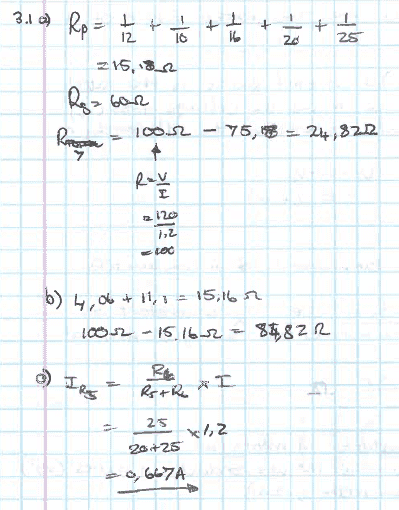 3.1 a) Rp = 1/12 + 1/10 + 1/16 + 1/20 + 1/25
= 15,18 Ω
Rs = 60Ω
R7 = 100Ω - 75,18 = 24,82Ω
R = V/I
= 120/1,2
= 100
b) 4,06 + 11,1 = 15,16 Ω
100Ω - 15,16 Ω = 84,82 Ω
c) I R5 = R6/R5+R6 × I
= 25/20+25 × 1,2
= 0,667A